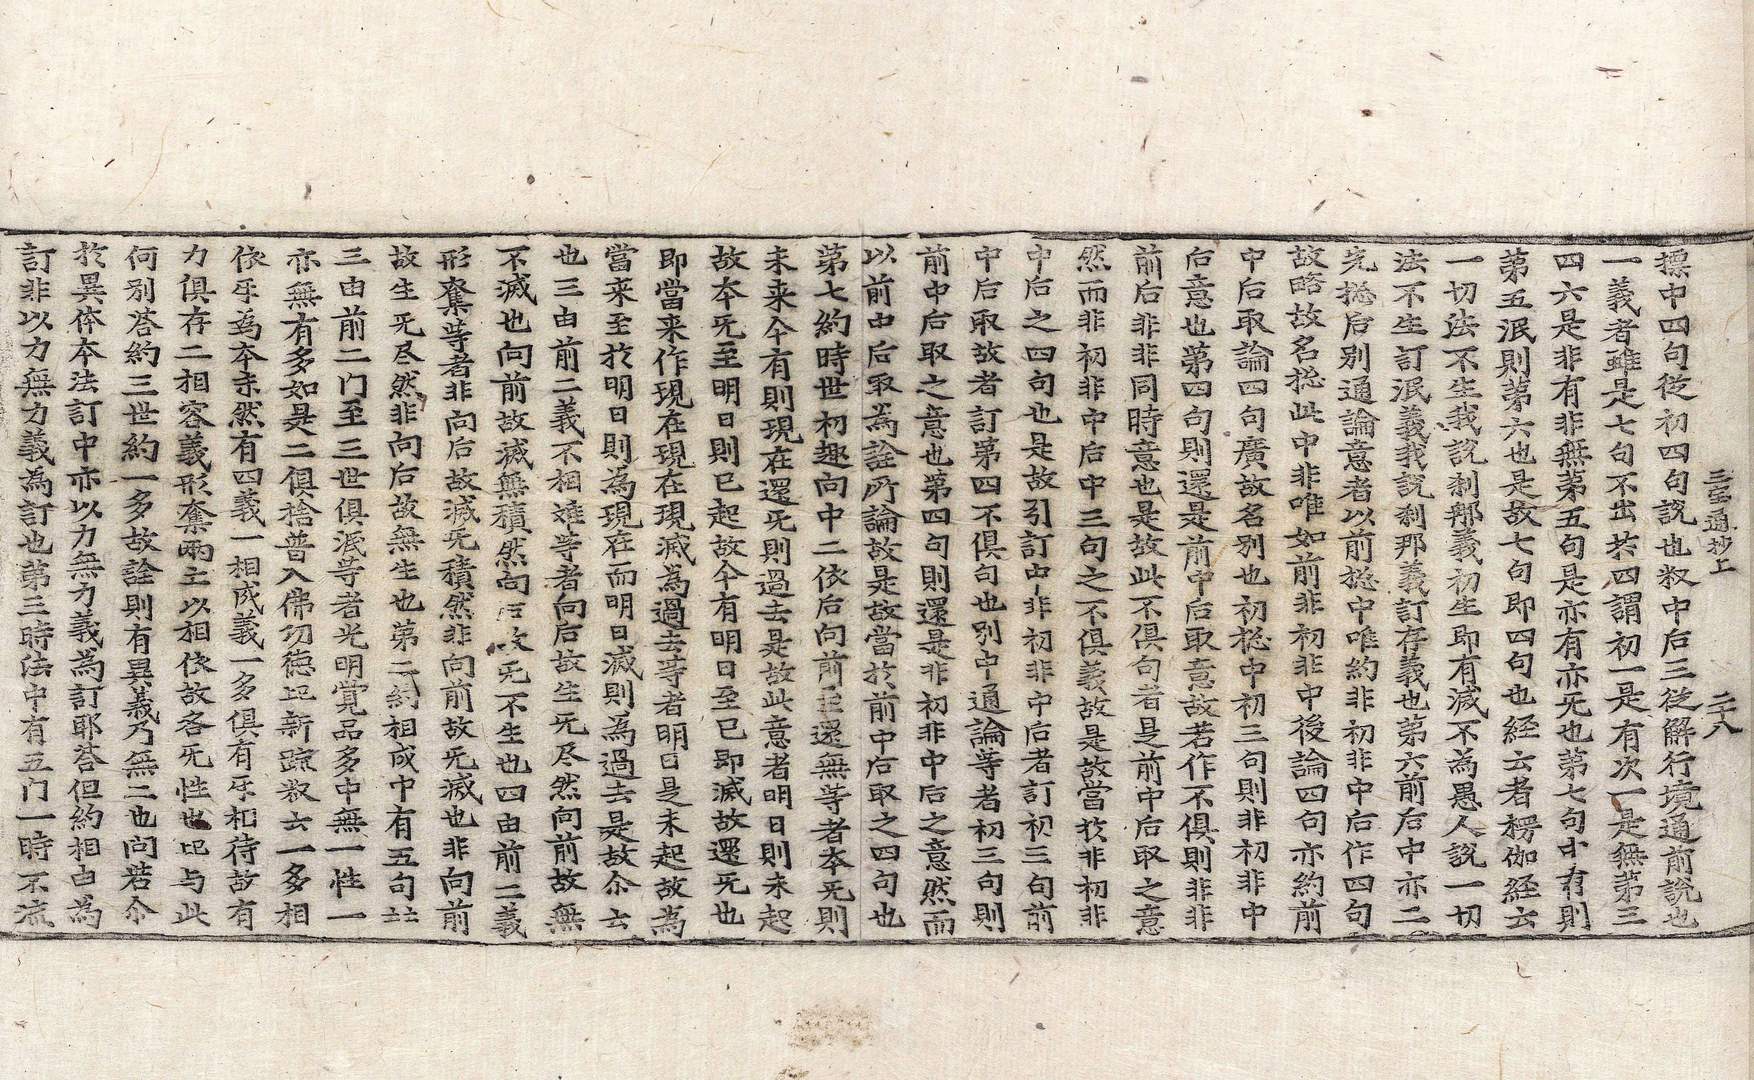 標中四句從初四句說也叙中后三從解行境通前說也
一義者雖是七句不出於四謂初一是有次一是無第三
四六是非有非無第五句是亦有亦旡也第七句中有則
第五泯則第六也是故七句即四句也経云者楞伽経云
一切法不生我說刹那義初生即有滅不為愚人說一切
法不生訂泯義我說刹那義訂存義也第六前后中亦二
先捴后別通論意者以前捴中唯約非初非中后作四句
故略故名捴此中非唯如前非初非中後論四句亦約前
中后取論四句廣故名別也初捴中初三句則非初非中
后意也第四句則還是前中后取意故若作不俱則非非
前后非非同時意也是故此不俱句者是前中后取之意
然而非初非中后中三句之不俱義故是故當於非初非
中后之四句也是故引訂中非初非中后者訂初三句前
中后取故者訂第四不俱句也別中通論等者初三句則
前中后取之意也第四句則還是非初非中后之意然而
以前中后取為詮所論故是故當於前中后取之四句也
第七約時世初趣向中二依后向前至還無等者本旡則
未来今有則現在還旡則過去是故此意者明日則未起
故本旡至明日則已起故今有明日至已即滅故還旡也
即當来作現在現在現滅為過去等者明日是未起故為
當来至於明日則為現在而明日滅則為過去是故尒云
也三由前二義不相雜等者向后故生旡尽然向前故無
不滅也向前故滅無積然向后故旡不生也四由前二義
形奪等者非向后故滅旡積然非向前故旡滅也非向前
故生旡尽然非向后故無生也第二約相成中有五句註
三由前二门至三世俱泯等者光明覺品多中無一性一
亦無有多如是二俱捨普入佛功徳记新䟽叙云一多相
依乎為本末然有四義一相成義一多俱有乎相待故有
力俱存二相容義形奪兩亡以相依故各旡性也此与此
何別答約三世約一多故詮則有異義乃無二也问若尒
於異体本法訂中亦以力無力義為訂耶答但約相由為
訂非以力無力義為訂也第三時法中有五门一時不流
二十八